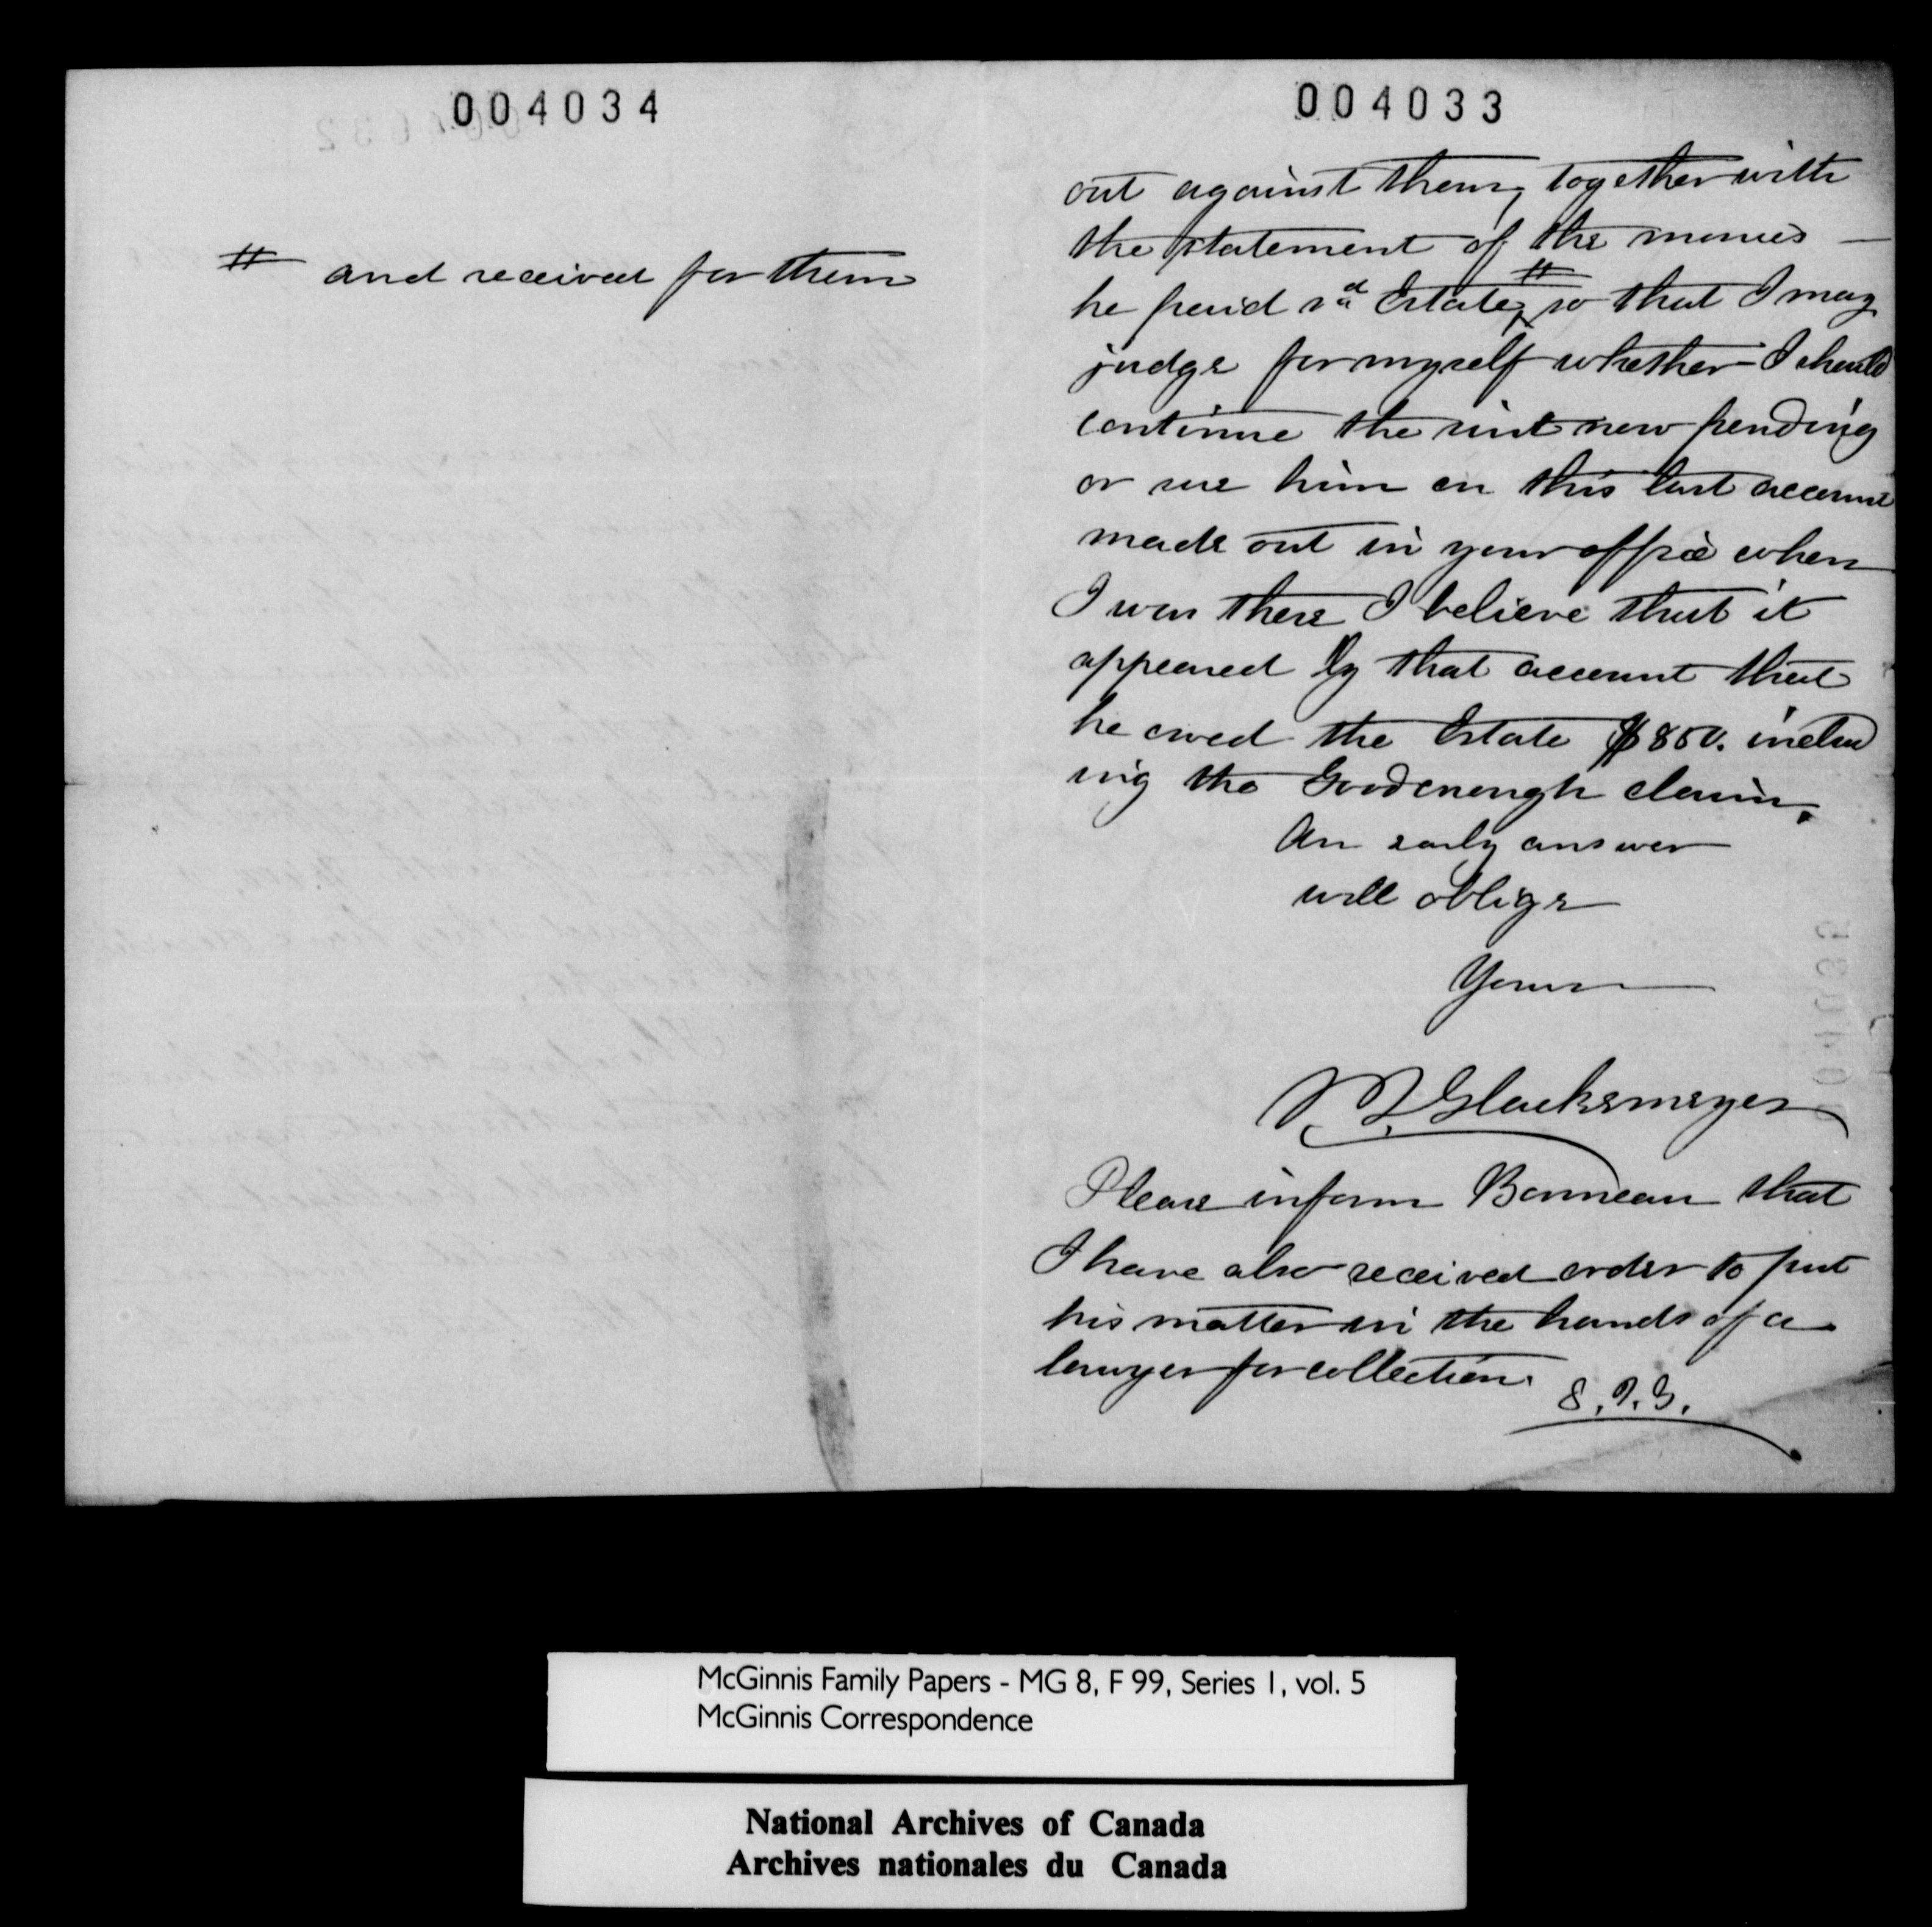 004034
# and received for them
004033
out against them, together with
the statement of the monies —
he paid sd Estate,# so that I may
judge for myself whether I should
continue the suit now pending
or sue him on this last account
made out in your office when
I was there I believe that it
appeared by that account that
he owed the Estate $850. includ
ing the Goodenough claim.
An early answer
will oblige
Yours
Glackemeyer
Please inform Bonneau that
I have also received order to put
his matter in the hands of a
lawyer for collection.
McGinnis Family Papers - MG 8, F 99, Series 1, vol. 5
McGinnis Correspondence
National Archives of Canada
Archives nationales du Canada